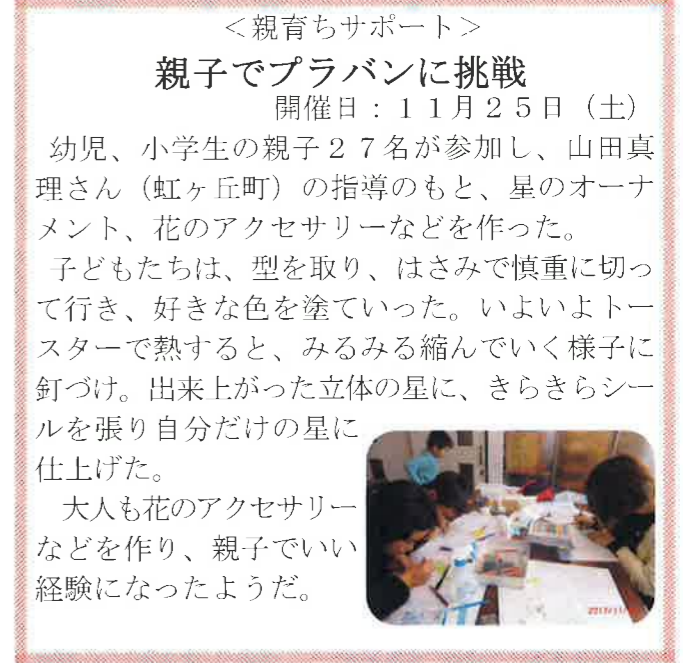 ＜親育ちサポート＞
親子でプラバンに挑戦
開催日：１１月２５日（土）
幼児、小学生の親子２７名が参加し、山田真
理さん（虹ヶ丘町）の指導のもと、星のオーナ
メント、花のアクセサリーなどを作った。
子どもたちは、型を取り、はさみで慎重に切っ
て行き、好きな色を塗ていった。いよいよトー
スターで熱すると、みるみる縮んでいく様子に
釘づけ。出来上がった立体の星に、きらきらシー
ルを張り自分だけの星に
仕上げた。
大人も花のアクセサリー
などを作り、親子でいい
経験になったようだ。